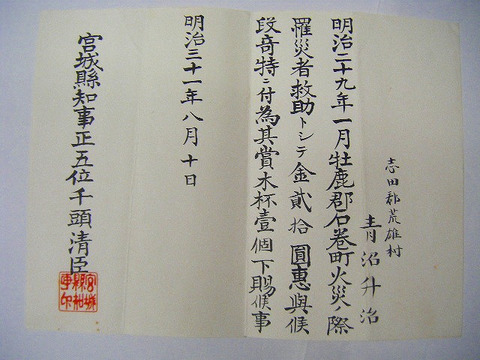 志田郡荒雄村
青沼升治
明治二十九年一月牡鹿郡石巻町火災ノ際
罹災者救助トシテ金貳拾圓惠與候
段竒特ニ付為其賞木杯壹個下賜候事
明治三十一年八月十日
宮城縣知事正五位千頭清臣
宮城
縣知
事印